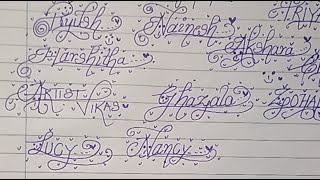 Piyush Nainesh
Harshitha Akshara
ARTIST VIKAS Ghazala ZOHA
Lucy Nancy